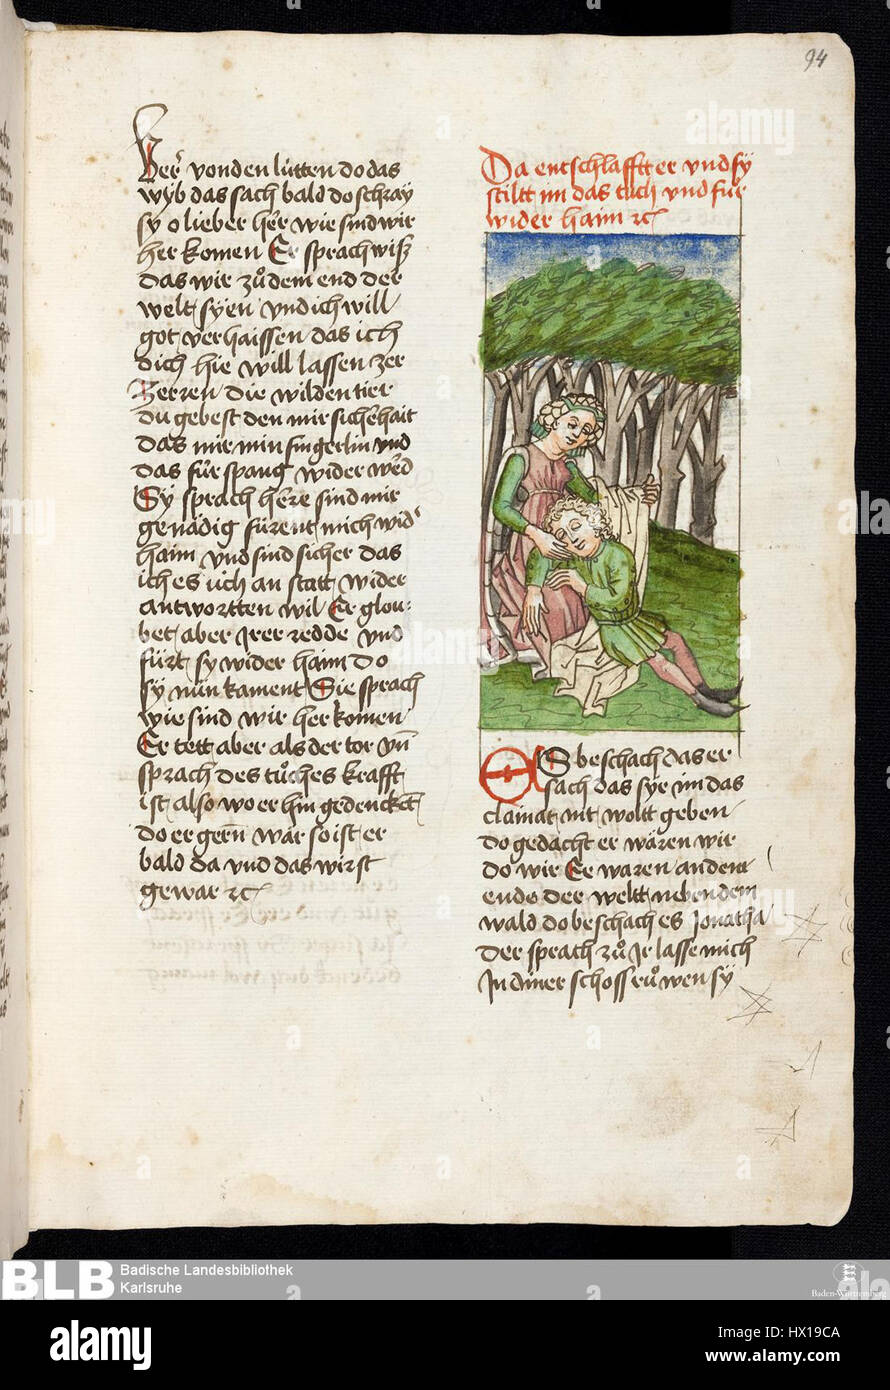 94
Ferr von den lütten do das
wyb das sach bald do schray
sy o lieber herr wie sind wir
her komen Er sprach wisz
das wir zů dem end der
welt syen vnd ich will
got verhaissen das ich
dich hie will lassen zer
Zerren die wilden tier
du gebest den mir sicherhait
das mir min fingerlin vnd
das für spang wider werd
Sy sprach herre sind mir
genädig fürent mich wider
haim vnd sind sicher das
ich es üch an statt wider
antwortten wil Er glou-
bet aber Irer redde vnd
fürt sy wider haim do
sy nün kament Sie sprach
wie sind wir her komen
Er tett aber als der tor vn̄
sprach des tůches krafft
ist also wo er hin gedencket
do er gern wär so ist er
bald da vnd das wirst
gewar ꝛc
Da entschlafftt er vnd sy
stiltt im das tůch vnd für
wider haim ꝛc
Es beschach das er
sach das syr im das
clainat nit woltt geben
do gedacht er wären wir
do wir Er waren andem
ende der weltt neben dem
wald do beschach es Jonatha
der sprach zů Ir lasse mich
In diner schoss růwen sy
BLB
Badische Landesbibliothek
Karlsruhe
Baden-Württemberg
alamy
HX19CA
www.alamy.com